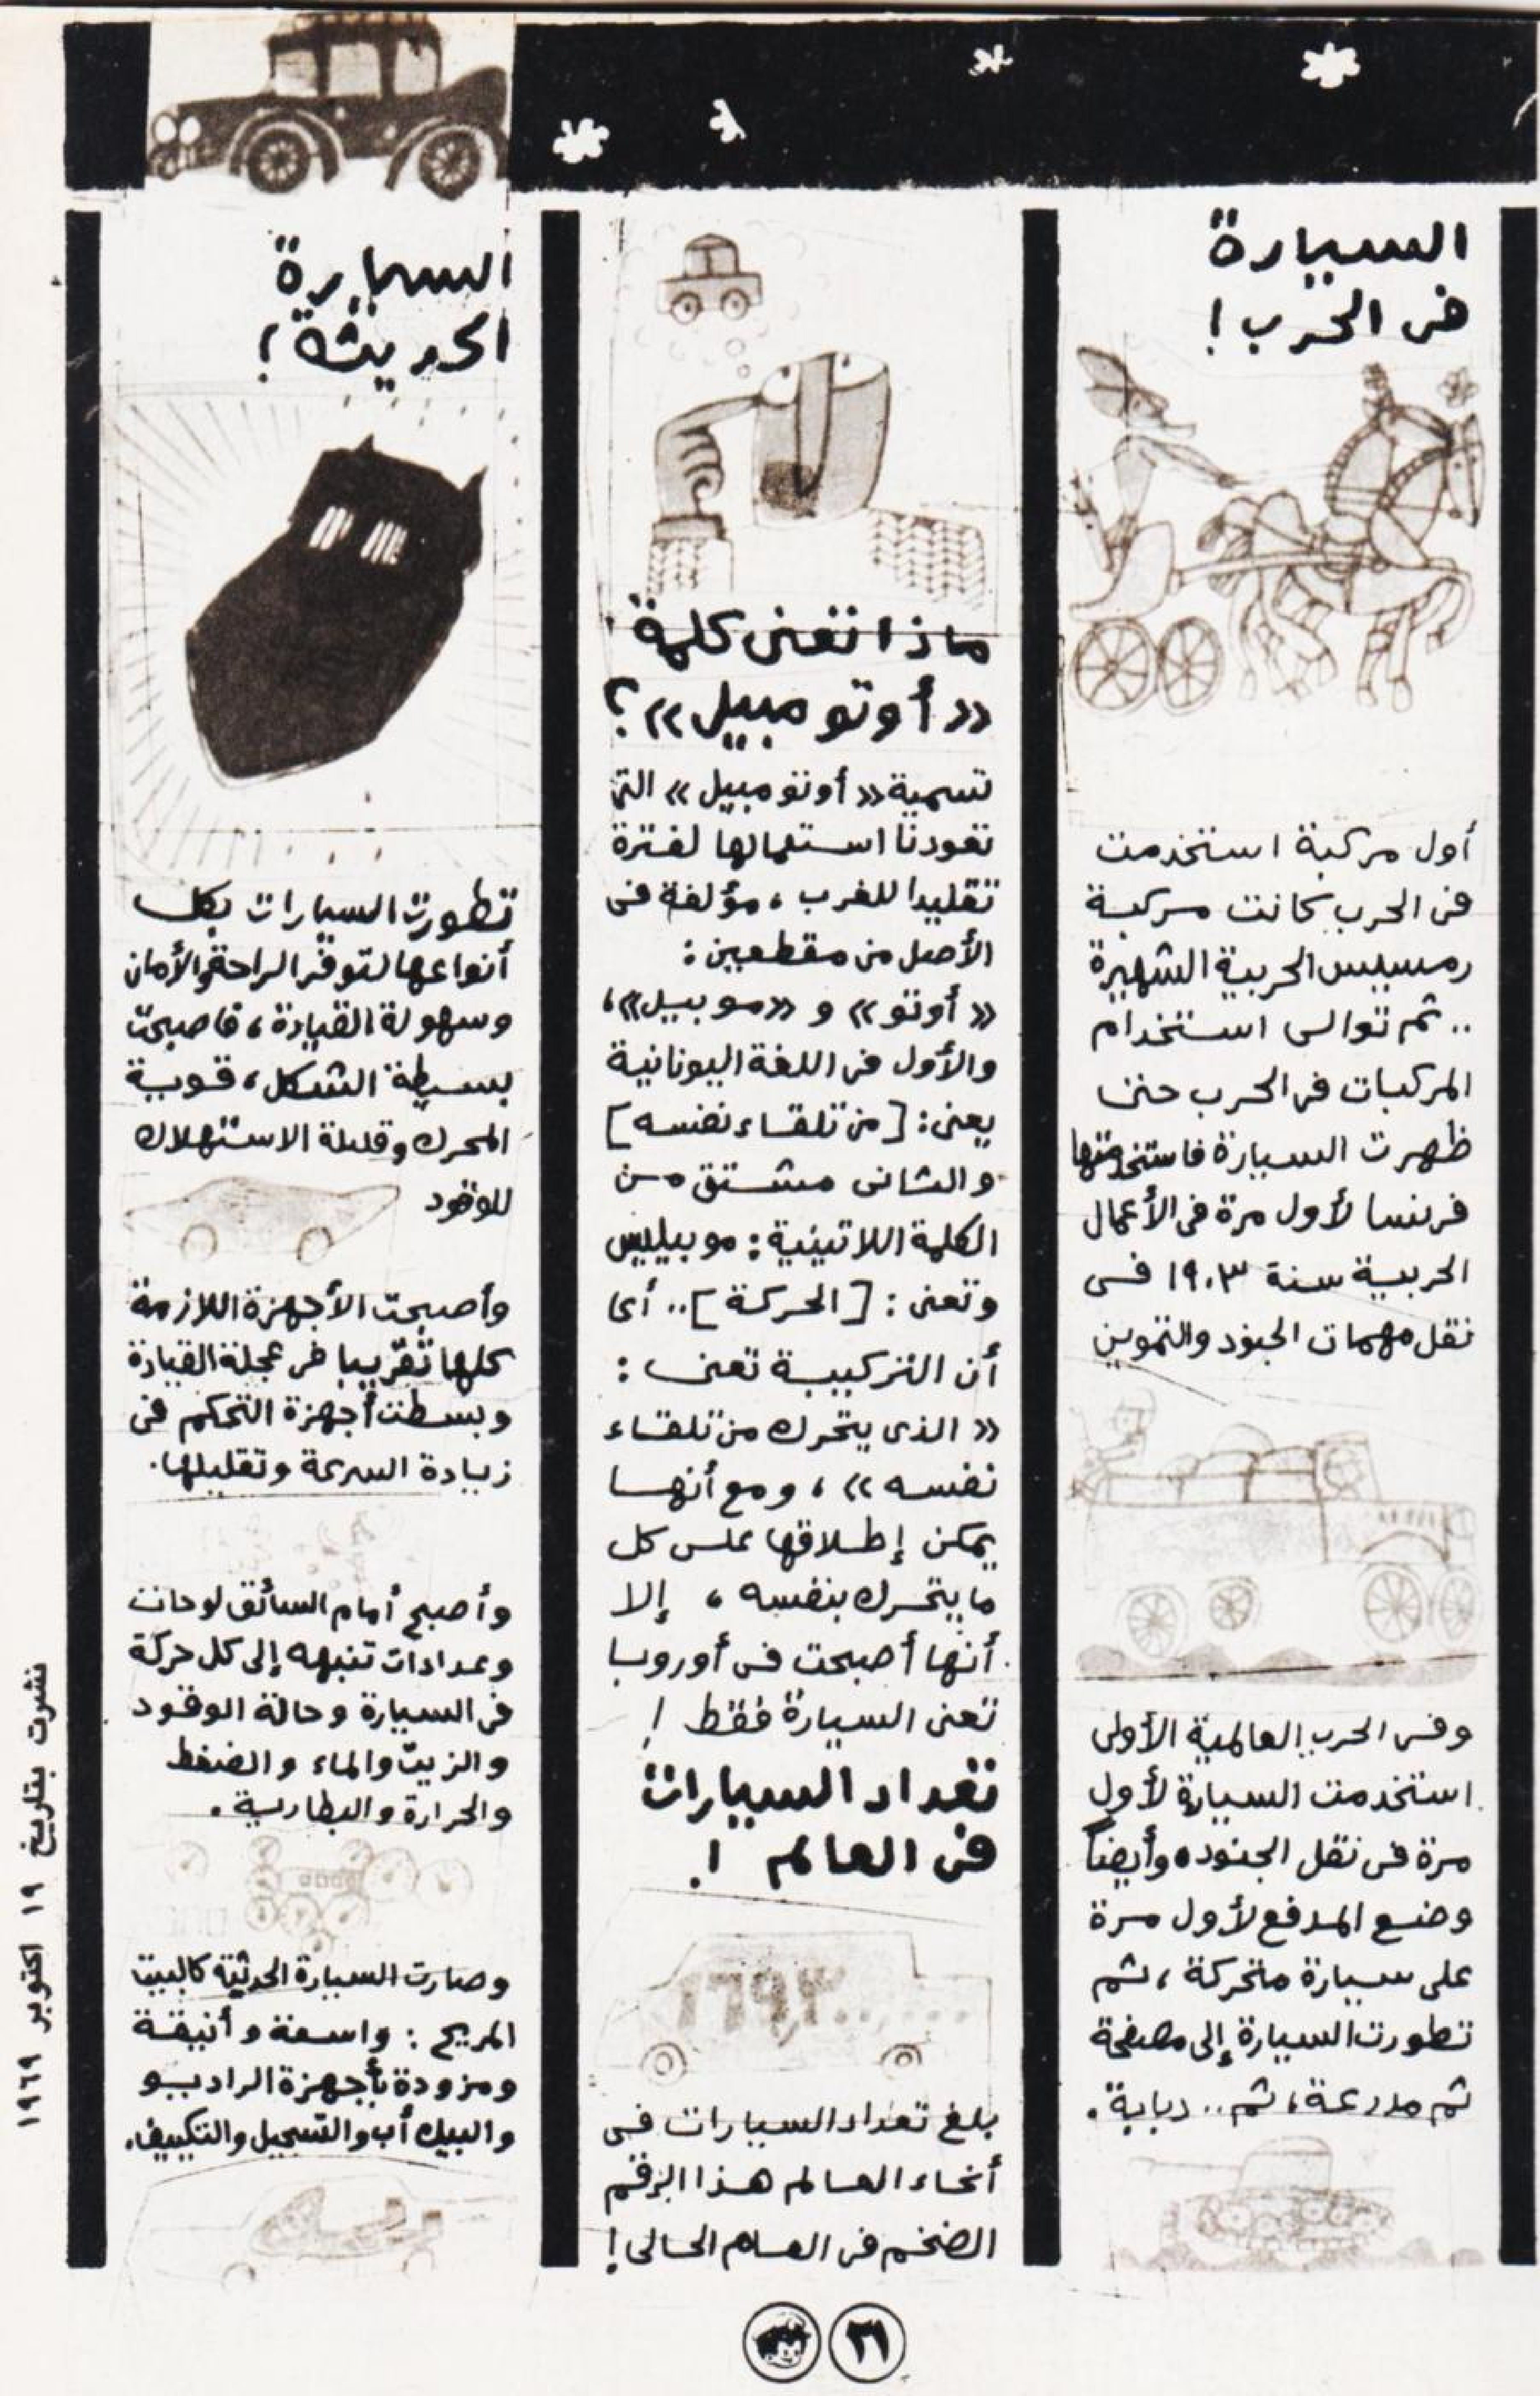 السيارة
فى الحرب !
أول مركبة استخدمت
فى الحرب كانت مركبة
رمسيس الحربية الشهيرة
.. ثم توالى استخدام
المركبات فى الحرب حتى
ظهرت السيارة فاستخدمتها
فرنسا لأول مرة فى الأعمال
الحربية سنة ١٩٠٣ فى
نقل مهمات الجنود والتموين
وفى الحرب العالمية الأولى
استخدمت السيارة لأول
مرة فى نقل الجنود، وأيضاً
وضع المدفع لأول مرة
على سيارة متحركة، ثم
تطورت السيارة إلى مصفحة
ثم مدرعة، ثم.. دبابة.
ماذا تعنى كلمة
«أوتومبيل»؟
تسمية «أوتومبيل» التى
تعودنا استعمالها لفترة
تقليدا للغرب، مؤلفة فى
الأصل من مقطعين:
«أوتو» و «موبيل»،
والأول فى اللغة اليونانية
يعنى: [من تلقاء نفسه]
والثانى مشتق من
الكلمة اللاتينية: موبيليس
وتعنى: [الحركة].. أى
أن التركيبة تعنى:
«الذى يتحرك من تلقاء
نفسه»، ومع أنها
يمكن إطلاقها على كل
ما يتحرك بنفسه، إلا
أنها أصبحت فى أوروبا
تعنى السيارة فقط !
تعداد السيارات
فى العالم !
بلغ تعداد السيارات فى
أنحاء العالم هذا الرقم
الضخم فى العام الحالى !
السيارة
الحديثة !
تطورت السيارات بكل
أنواعها لتوفر الراحة والأمان
وسهولة القيادة، فاصبحت
بسيطة الشكل، قوية
المحرك وقليلة الاستهلاك
للوقود
وأصبحت الأجهزة اللازمة
كلها تقريبا فى عجلة القيادة
وبسطت أجهزة التحكم فى
زيادة السرعة وتقليلها.
وأصبح أمام السائق لوحات
وعدادات تنبهه إلى كل حركة
فى السيارة وحالة الوقود
والزيت والماء والضغط
والحرارة والبطارية.
وصارت السيارة الحديثة كالبيت
المريح: واسعة وأنيقة
ومزودة بأجهزة الراديو
والبيك أب والتسجيل والتكييف.
نشرت بتاريخ ١٩ اكتوبر ١٩٦٩
٣١